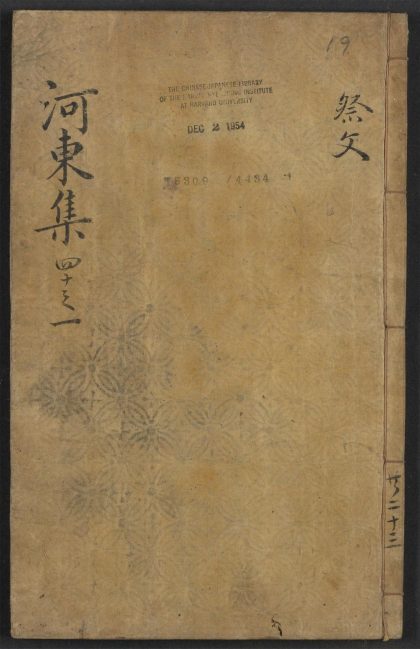 19
祭文
THE CHINESE-JAPANESE LIBRARY
OF THE HARVARD-YENCHING INSTITUTE
AT HARVARD UNIVERSITY
DEC 2 1954
河東集
四十之一
共二十三